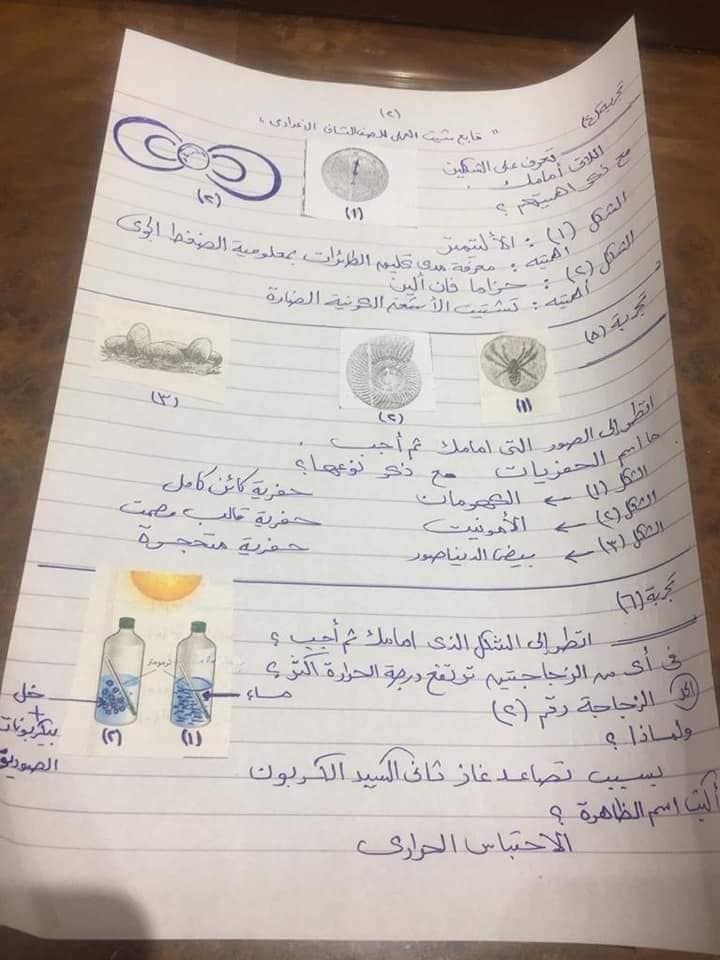 (٢)
" تابع شيت العملى للصف الثانى الاعدادى "
تجربة (٤)
تعرف على الشكلين
اللاتى أمامك
مع ذكر اهميتهم ؟
(١)
(٢)
الشكل (١) : الألتيمتر
أهميته : معرفة مدى تحليق الطائرات بمعلومية الضغط الجوى
الشكل (٢) : حزاما فان ألين
أهميته : تشتيت الأشعة الكونية الضارة
تجربة (٥)
(١)
(٢)
(٣)
انظر إلى الصور التى امامك ثم أجب .
ما اسم الحفريات مع ذكر نوعها ؟
الشكل (١) ← الكهرمان حفرية كائن كامل
الشكل (٢) ← الأمونيت حفرية قالب مصمت
الشكل (٣) ← بيض الديناصور حفرية متحجرة
تجربة (٦)
انظر إلى الشكل الذى امامك ثم أجب ؟
فى أى من الزجاجتين ترتفع درجة الحرارة أكثر ؟
الزجاجة رقم (٢)
ولماذا ؟
بسبب تصاعد غاز ثانى اكسيد الكربون
أكتب اسم الظاهرة ؟
الاحتباس الحرارى
ترمومتر
ماء
(١)
(٢)
خل
+
بيكربونات
الصوديوم